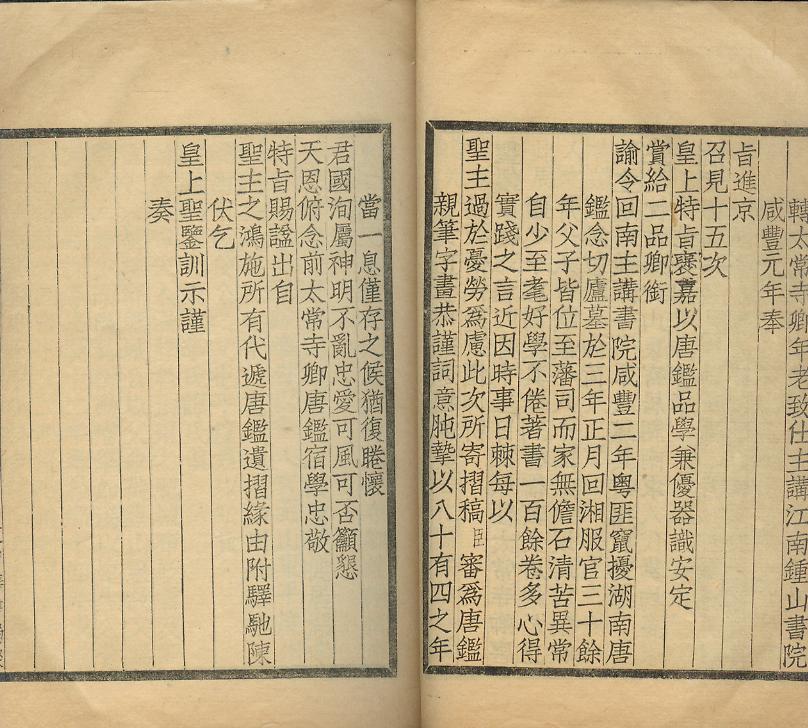 轉太常寺卿年老致仕主講江南鍾山書院
咸豐元年奉
旨進京
召見十五次
皇上特旨褒嘉以唐鑑品學兼優器識安定
賞給二品卿銜
諭令回南主講書院咸豐二年粵匪竄擾湖南唐
鑑念切廬墓於三年正月回湘服官三十餘
年父子皆位至藩司而家無儋石清苦異常
自少至耄好學不倦著書一百餘卷多心得
實踐之言近因時事日棘每以
聖主過於憂勞爲慮此次所寄摺稿臣審爲唐鑑
親筆字畫恭謹詞意肫摯以八十有四之年
當一息僅存之候猶復睠懷
君國洵屬神明不亂忠愛可風可否籲懇
天恩俯念前太常寺卿唐鑑宿學忠敬
特旨賜諡出自
聖主之鴻施所有代遞唐鑑遺摺緣由附驛馳陳
伏乞
皇上聖鑒訓示謹
奏